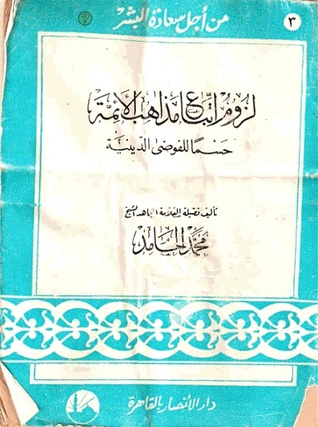 من أجل سعادة البشر
٣
لزوم اتباع مذاهب الأئمة
حسما للفوضى الدينية
تأليف فضيلة العلامة المجاهد الشيخ
محمد الحامد
دار الأنصار بالقاهرة